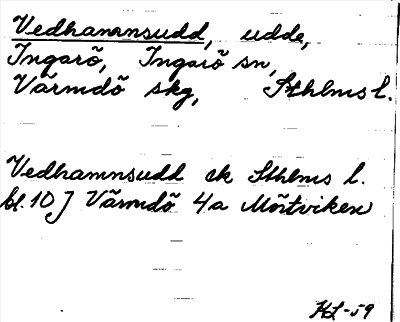 Vedhamnsudd, udde,
Ingarö, Ingarö sn,
Värmdö skg, Sthlms l.
Vedhamnsudd ek Sthlms l.
bl. 10 J Värmdö 4a Mörtviken
HL-59